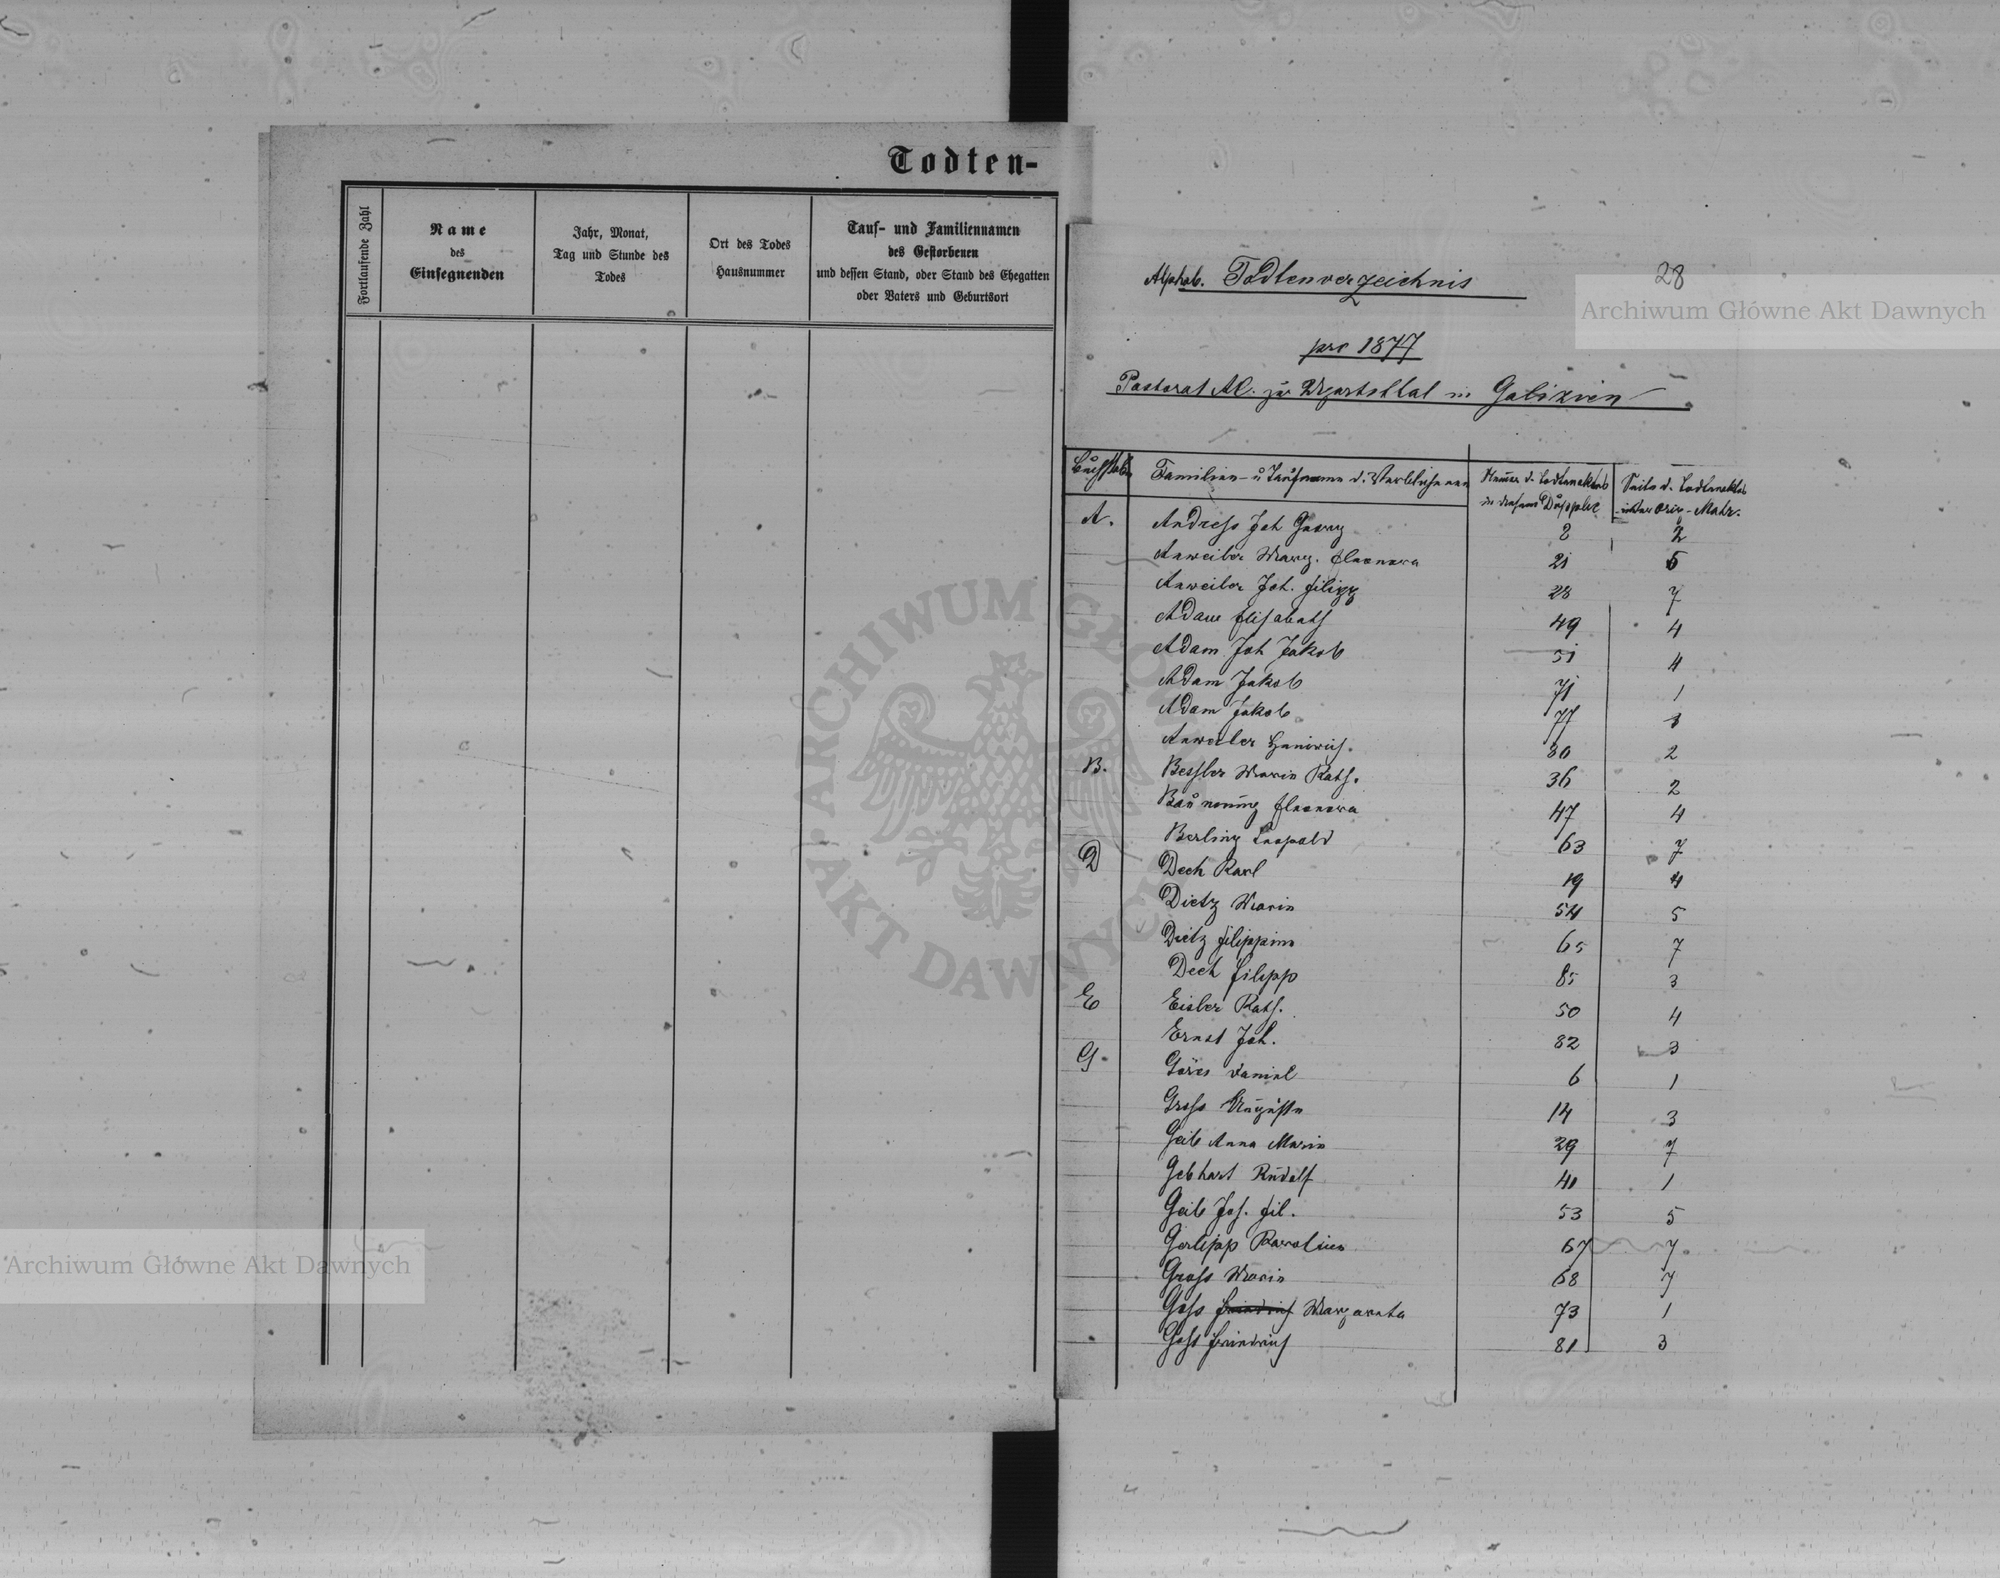 Todten-
Fortlaufende Zahl
Name
des
Einsegnenden
Jahr, Monat,
Tag und Stunde des
Todes
Ort des Todes
Hausnummer
Tauf- und Familiennamen
des Gestorbenen
und dessen Stand, oder Stand des Ehegatten
oder Vaters und Geburtsort
28
Archiwum Główne Akt Dawnych
Alphab. Todtenverzeichnis
pro 1877
Pastorat AC. zu Ugartsthal in Galizien
Buchstabe Familien- u Taufname d. Verblichenen
in diesem Duplic. Seite d. Todtenaktes
in der Orig-Matr.
A. Andress Joh Georg 2 2
Anweiler Marg. Eleonora 21 5
Anweiler Joh. Filipp 28 7
Adam Elisabeth 49 4
Adam Joh Jakob 51 4
Adam Jakob 71 1
Adam Jakob 77 3
Anweiler Heinrich. 80 2
B. Maria Kath. 36 2
Eleonora 47 4
Berling Leopold 63 7
D Dech Karl 19 4
Dietz Maria 54 5
Dietz Filippina 65 7
Dech Filipp 85 3
E Eisler Kath. 50 4
Ernst Joh. 82 3
G. Göres Daniel 6 1
Gross Auguste 14 3
Geib Anna Maria 29 7
Gebhart Rudolf 41 1
Geib Joh. Fil. 53 5
Gerlipp Karolina 67 7
Gross Maria 68 7
Goss Friedrich Margareta 73 1
Goss Friedrich 81 3
ARCHIWUM GŁÓWNE AKT DAWNYCH
Archiwum Główne Akt Dawnych